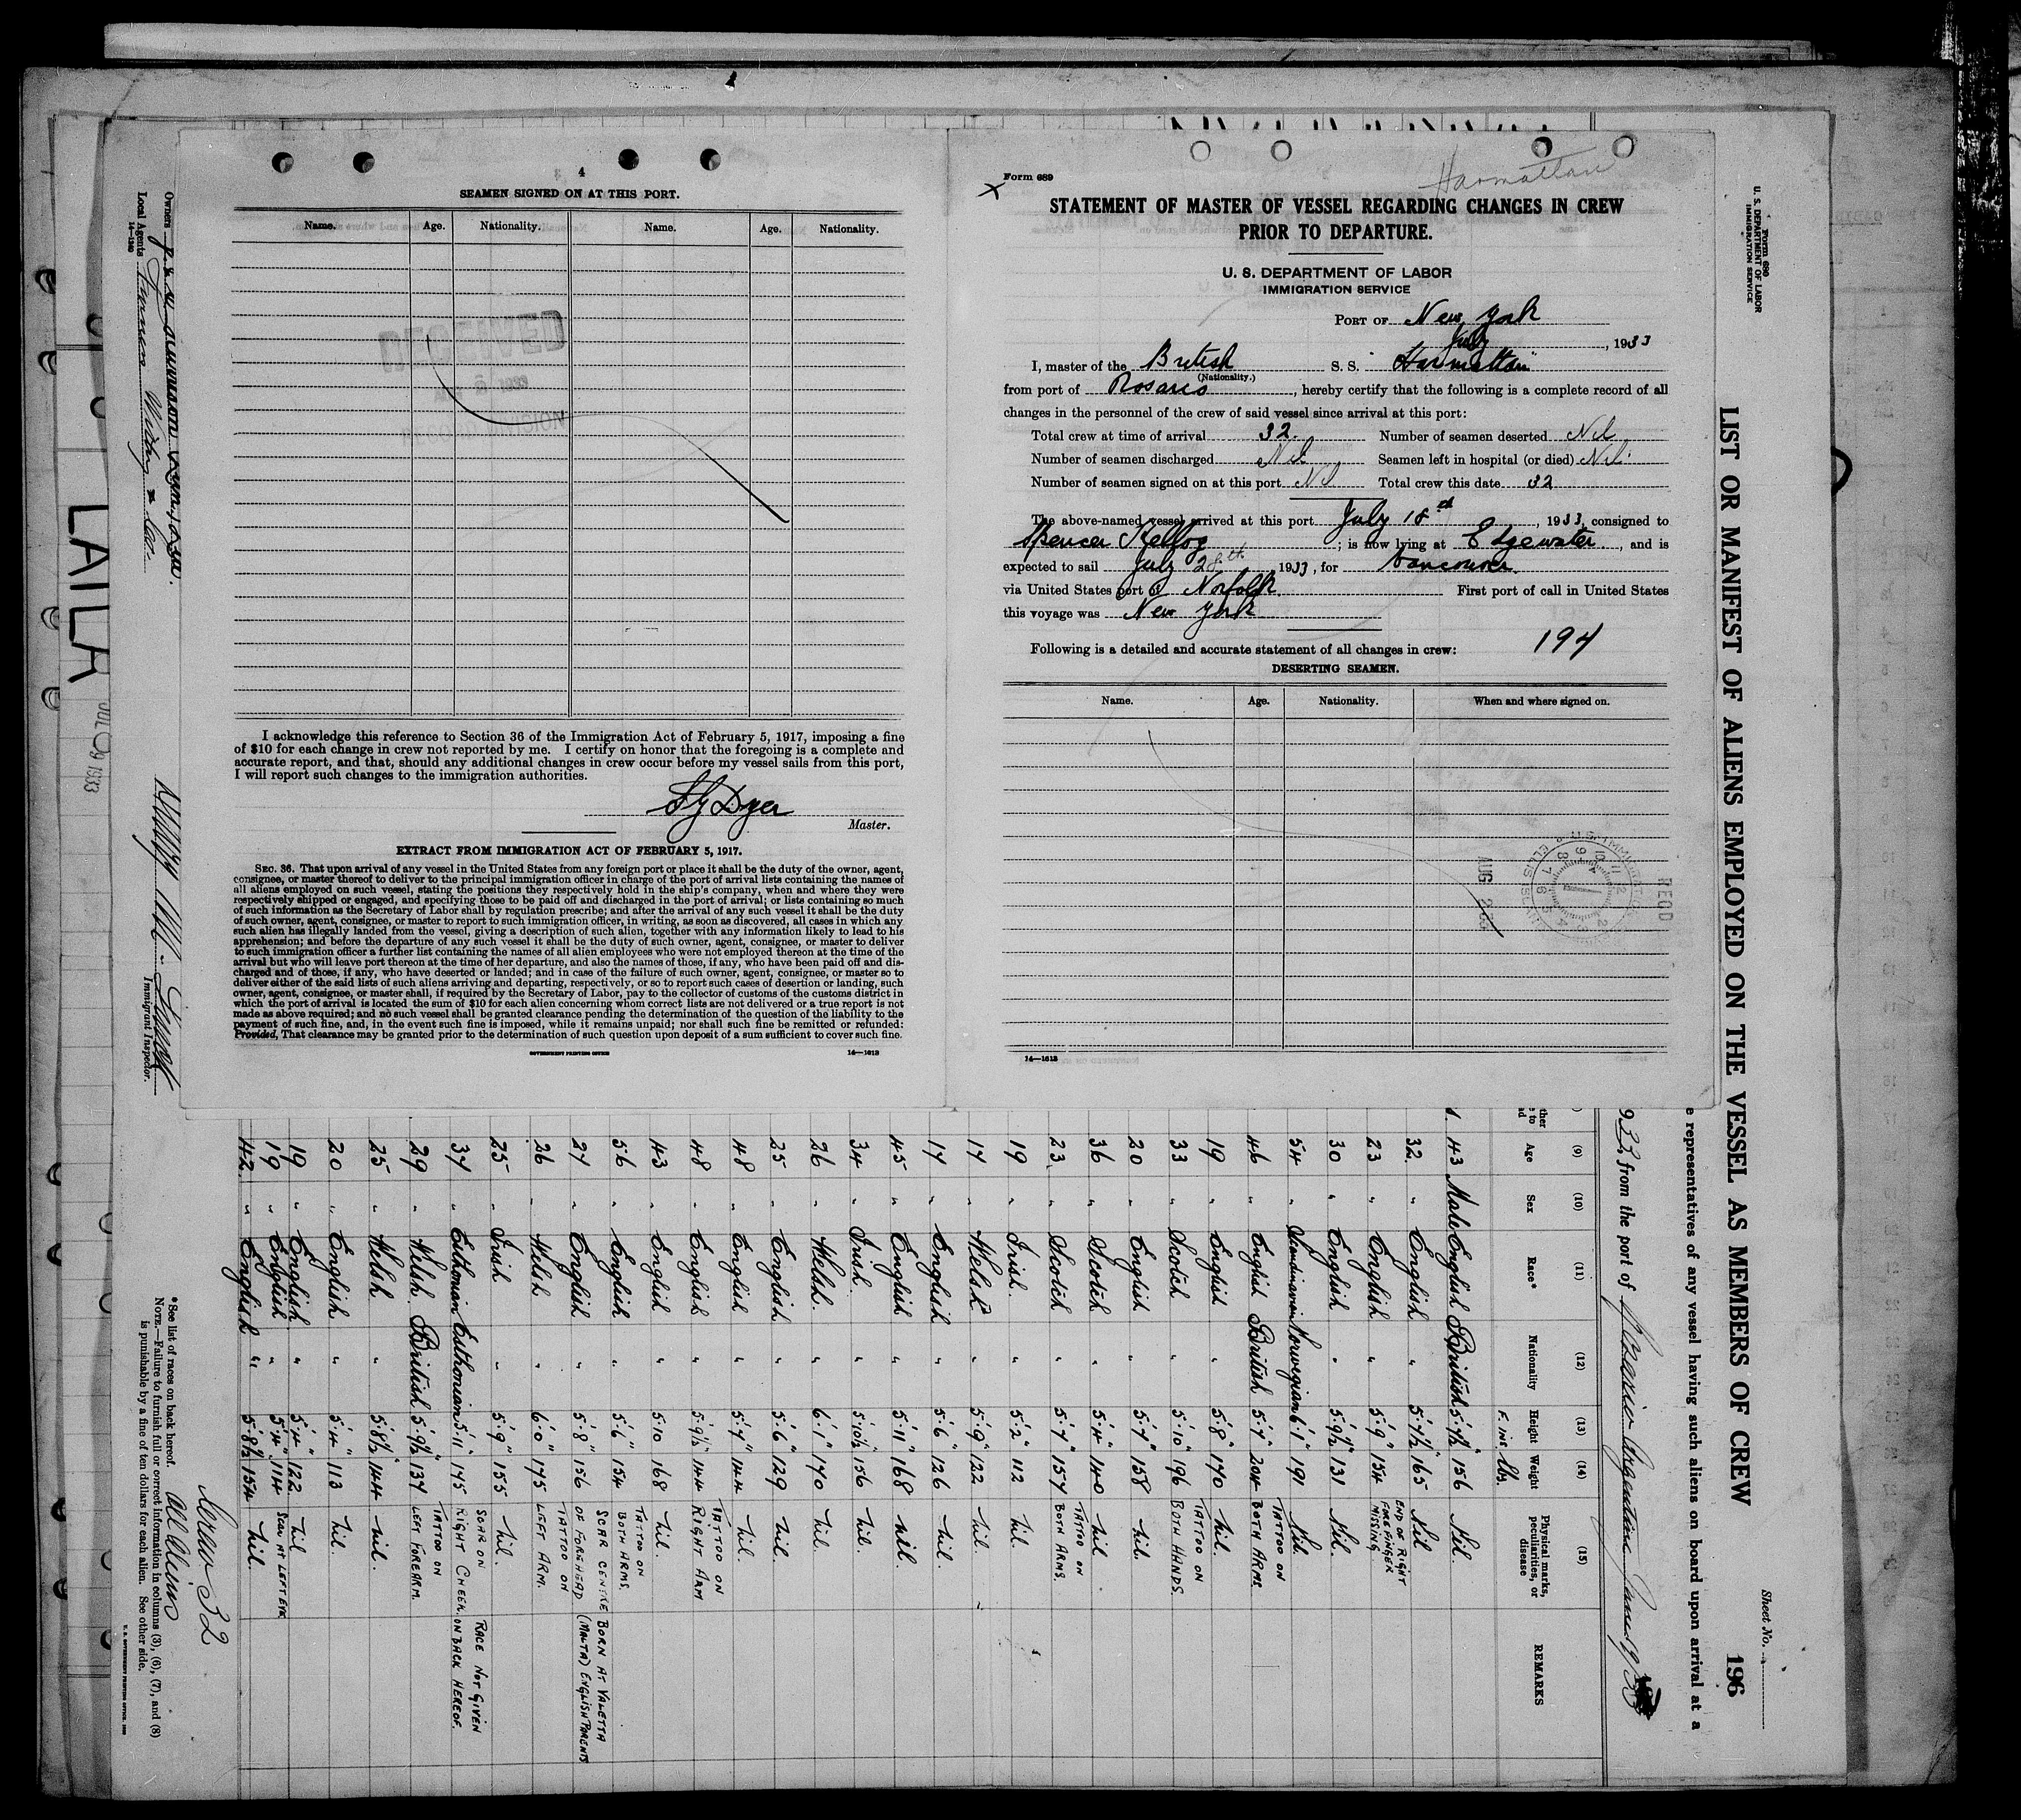 4
SEAMEN SIGNED ON AT THIS PORT.
Name. Age. Nationality. Name. Age. Nationality.
RECEIVED
I acknowledge this reference to Section 36 of the Immigration Act of February 5, 1917, imposing a fine
of $10 for each change in crew not reported by me. I certify on honor that the foregoing is a complete and
accurate report, and that, should any additional changes in crew occur before my vessel sails from this port,
I will report such changes to the immigration authorities.
Dyer
Master.
EXTRACT FROM IMMIGRATION ACT OF FEBRUARY 5, 1917.
SEC. 36. That upon arrival of any vessel in the United States from any foreign port or place it shall be the duty of the owner, agent,
consignee, or master thereof to deliver to the principal immigration officer in charge of the port of arrival lists containing the names of
all aliens employed on such vessel, stating the positions they respectively hold in the ship's company, when and where they were
respectively shipped or engaged, and specifying those to be paid off and discharged in the port of arrival; or lists containing so much
of such information as the Secretary of Labor shall by regulation prescribe; and after the arrival of any such vessel it shall be the duty
of such owner, agent, consignee, or master to report to such immigration officer, in writing, as soon as discovered, all cases in which any
such alien has illegally landed from the vessel, giving a description of such alien, together with any information likely to lead to his
apprehension; and before the departure of any such vessel it shall be the duty of such owner, agent, consignee, or master to deliver
to such immigration officer a further list containing the names of all alien employees who were not employed thereon at the time of the
arrival but who will leave port thereon at the time of her departure, and also the names of those, if any, who have been paid off and dis-
charged and of those, if any, who have deserted or landed; and in case of the failure of such owner, agent, consignee, or master so to
deliver either of the said lists of such aliens arriving and departing, respectively, or so to report such cases of desertion or landing, such
owner, agent, consignee, or master shall, if required by the Secretary of Labor, pay to the collector of customs of the customs district in
which the port of arrival is located the sum of $10 for each alien concerning whom correct lists are not delivered or a true report is not
made as above required; and no such vessel shall be granted clearance pending the determination of the question of the liability to the
payment of such fine, and, in the event such fine is imposed, while it remains unpaid; nor shall such fine be remitted or refunded:
Provided, That clearance may be granted prior to the determination of such question upon deposit of a sum sufficient to cover such fine.
GOVERNMENT PRINTING OFFICE 14—1613
Harmattan
Form 689
X
STATEMENT OF MASTER OF VESSEL REGARDING CHANGES IN CREW
PRIOR TO DEPARTURE.
U. S. DEPARTMENT OF LABOR
IMMIGRATION SERVICE
PORT OF New York
July, 1933
I, master of the British S. S. "Harmattan"
(Nationality.)
from port of Rosario, hereby certify that the following is a complete record of all
changes in the personnel of the crew of said vessel since arrival at this port:
Total crew at time of arrival 32. Number of seamen deserted Nil
Number of seamen discharged Nil Seamen left in hospital (or died) Nil
Number of seamen signed on at this port Nil Total crew this date 32
The above-named vessel arrived at this port July 18, 1933, consigned to
Spencer Kellog; is now lying at Edgewater, and is
expected to sail July 28th, 1933, for Vancouver.
via United States port of Norfolk. First port of call in United States
this voyage was New York
Following is a detailed and accurate statement of all changes in crew: 194
DESERTING SEAMEN.
Name. Age. Nationality. When and where signed on.
AUG
REOD
14—1613
Form 680
U. S. DEPARTMENT OF LABOR
IMMIGRATION SERVICE
Sheet No.
LIST OR MANIFEST OF ALIENS EMPLOYED ON THE VESSEL AS MEMBERS OF CREW 196
e representatives of any vessel having such aliens on board upon arrival at a
933, from the port of Rosario Argentina
(9) (10) (11) (12) (13) (14) (15)
Age Sex Race* Nationality Height Weight Physical marks, peculiarities, or disease REMARKS
F. ins. Lbs.
43 Male English British 5'.7½" 156 Nil.
32 " English " 5'.7½" 165 Nil
23 " English " 5'.9" 154 END OF RIGHT FORE FINGER MISSING
30 " English " 5'.9½" 131 Nil.
54 " Scandinavian Norwegian 6'.1" 191 Nil.
46 " English British 5'.7" 204 TATTOO ON BOTH ARMS
19 " English " 5'.8" 170 Nil.
33 " Scotch " 5'.10" 196 TATTOO ON BOTH HANDS.
20 " English " 5'.7" 158 Nil.
36 " Scotch " 5'.4" 140 Nil
23 " Scotch " 5'.7" 157 TATTOO ON BOTH ARMS.
19 " Irish " 5'.2" 112 Nil.
17 " Welsh " 5'.9" 122 Nil.
17 " English " 5'.6" 126 Nil.
45 " English " 5'.11" 168 Nil
34 " Irish " 5'.10½ 156 Nil.
26 " Welsh " 6'.1" 170 Nil.
25 " English " 5'.6" 129 Nil.
48 " English " 5'.7" 144 Nil.
48 " English " 5'.9½" 144 TATTOO ON RIGHT ARM
43 " English " 5'.10 168 Nil.
56 " English " 5'.6" 154 TATTOO ON BOTH ARMS.
27 " English " 5'.8" 156 SCAR CENTRE OF FOREHEAD BORN AT VALETTA (MALTA) ENGLISH PARENTS
26 " Welsh " 6'.0" 175 TATTOO ON LEFT ARM.
25 " Irish " 5'.9" 155 Nil.
37 " Esthonian Esthonian 5'.11" 175 SCAR ON RIGHT CHEEK. RACE NOT GIVEN ON BACK HEREOF.
29 " Welsh British 5'.9½" 137 TATTOO ON LEFT FOREARM.
25 " Welsh " 5'.8½" 144 Nil.
20 " English " 5'.4" 113 Nil.
19 " English " 5'.4" 122 Nil
19 " English " 5'.4" 114 SCAR AT LEFT EYE
42 " English " 5'.8½ 154 Nil.
Crew 32
*See list of races on back hereof.
NOTE.—Failure to furnish full or correct information in columns (3), (6), (7), and (8)
is punishable by a fine of ten dollars for each alien. See other side.
Owners
Local Agents
14—1240
Immigrant Inspector.
LAILA
1933